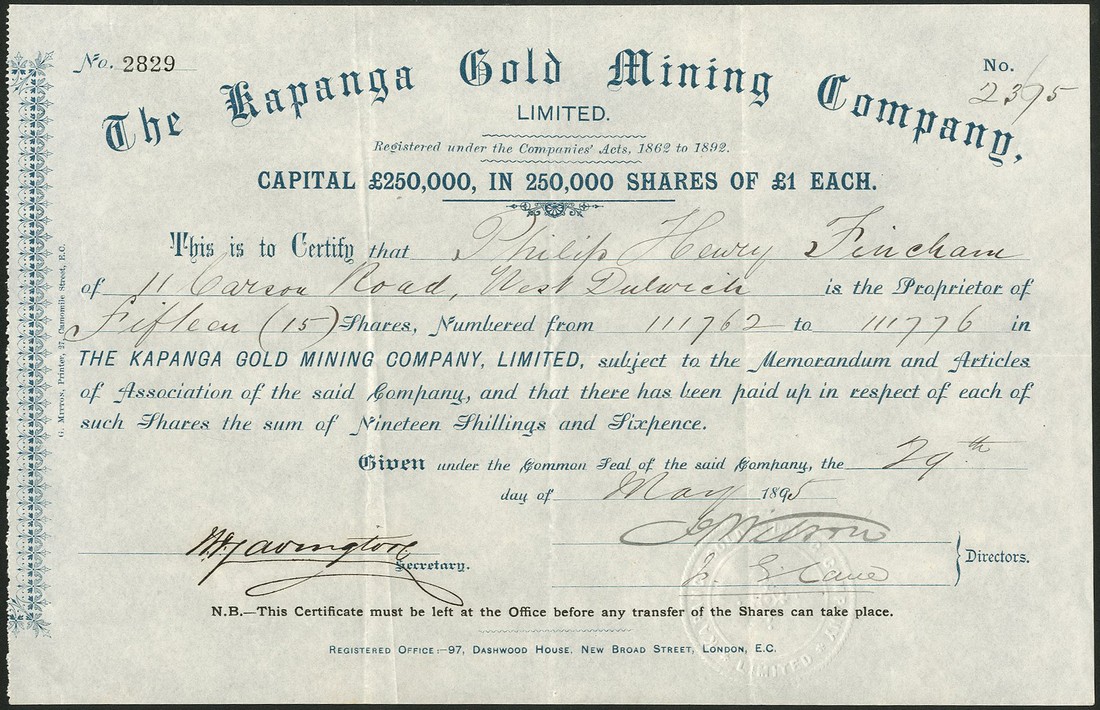 No. 2829
No. 2395
The Kapanga Gold Mining Company,
LIMITED.
Registered under the Companies' Acts, 1862 to 1892.
CAPITAL £250,000, IN 250,000 SHARES OF £1 EACH.
This is to Certify that Philip Henry Fincham
of 11 Carson Road, West Dulwich is the Proprietor of
Fifteen (15) Shares, Numbered from 111762 to 111776 in
THE KAPANGA GOLD MINING COMPANY, LIMITED, subject to the Memorandum and Articles
of Association of the said Company, and that there has been paid up in respect of each of
such Shares the sum of Nineteen Shillings and Sixpence.
Given under the Common Seal of the said Company, the 29th
day of May 1895
Wilson
Secretary.
Directors.
N.B.—This Certificate must be left at the Office before any transfer of the Shares can take place.
REGISTERED OFFICE:—97, DASHWOOD HOUSE, NEW BROAD STREET, LONDON, E.C.
Printer, 27, Camomile Street, E.C.
LIMITED